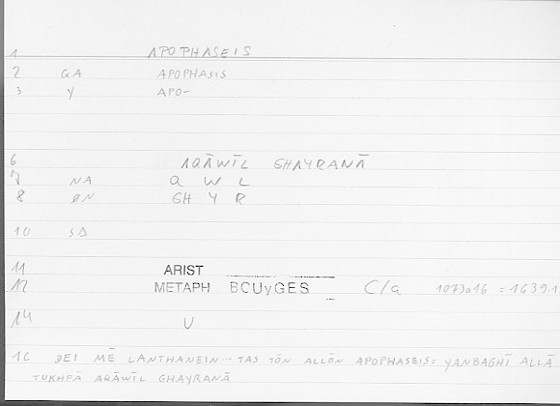 1 APOPHASEIS
2 GA APOPHASIS
3 Y APO-
6 AQĀWĪL GHAYRANĀ
7 NA Q W L
8 ØN GH Y R
10 SD
11 ARIST
12 METAPH BOUyGES C/a 1073a16 = 1639.1
14 U
16 DEI MĒ LANTHANEIN ... TAS TŌN ALLŌN APOPHASEIS: YANBAGHĪ ALLĀ
TUKHFĀ AQĀWĪL GHAYRANĀ